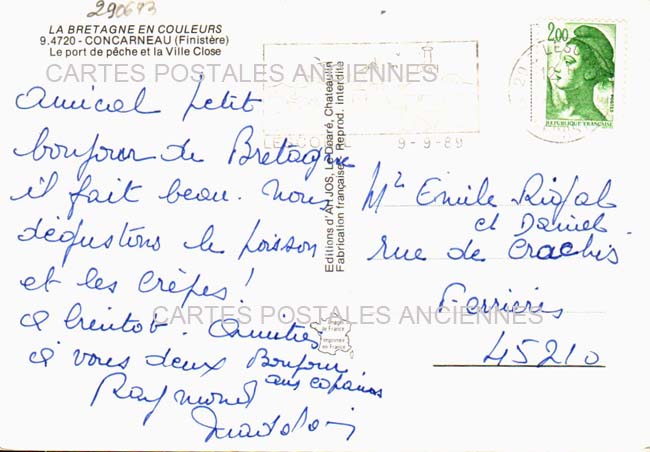 290673
LA BRETAGNE EN COULEURS
9.4720 - CONCARNEAU (Finistère)
Le port de pêche et la Ville Close
CARTES POSTALES ANCIENNES
Amical petit
bonjour de Bretagne
il fait beau. Nous
dégustons le poisson
et les crêpes!
à bientot. Amitiés
à vous deux Bonjour
aux copains
Raymond
Editions d'Art JOS, Le Doaré, Chateaulin
Fabrication française - Reprod. interdite
Image de France
Imprimée en France
9-9-89
2,00
POSTES
REPUBLIQUE FRANÇAISE
Mr Emile Rigal
et Daniel
rue de Crachis
Ferrières
45210
CARTES POSTALES ANCIENNES